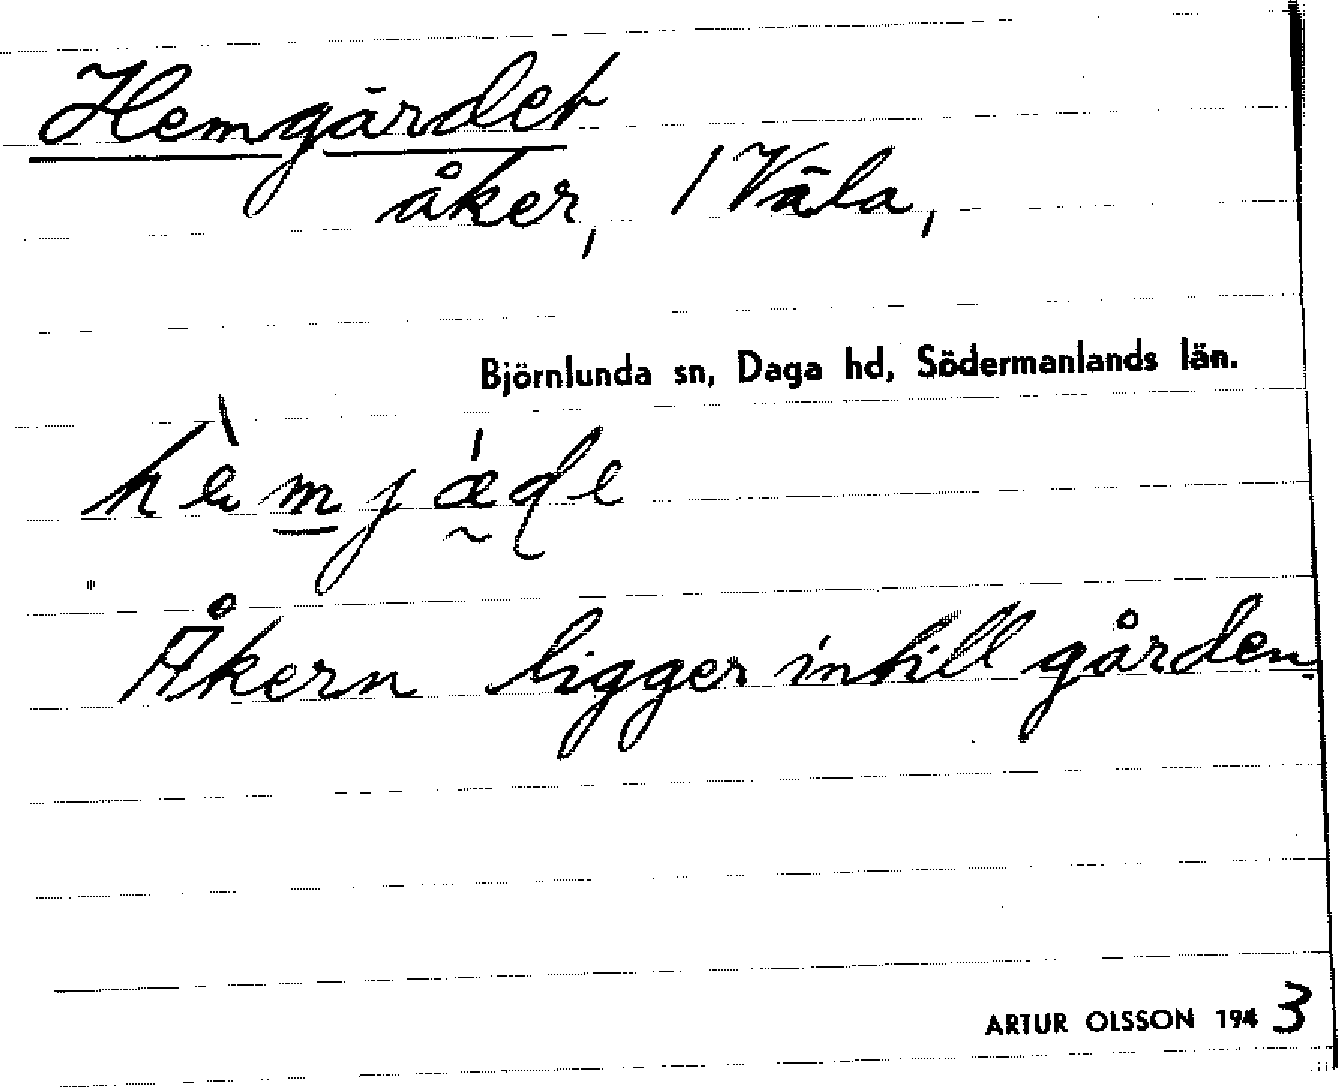 Hemgärdet
åker, / Väla,
Björnlunda sn, Daga hd, Södermanlands län.
hèmjǽ̰ɖe
Åkern ligger intill gården
ARTUR OLSSON 1943